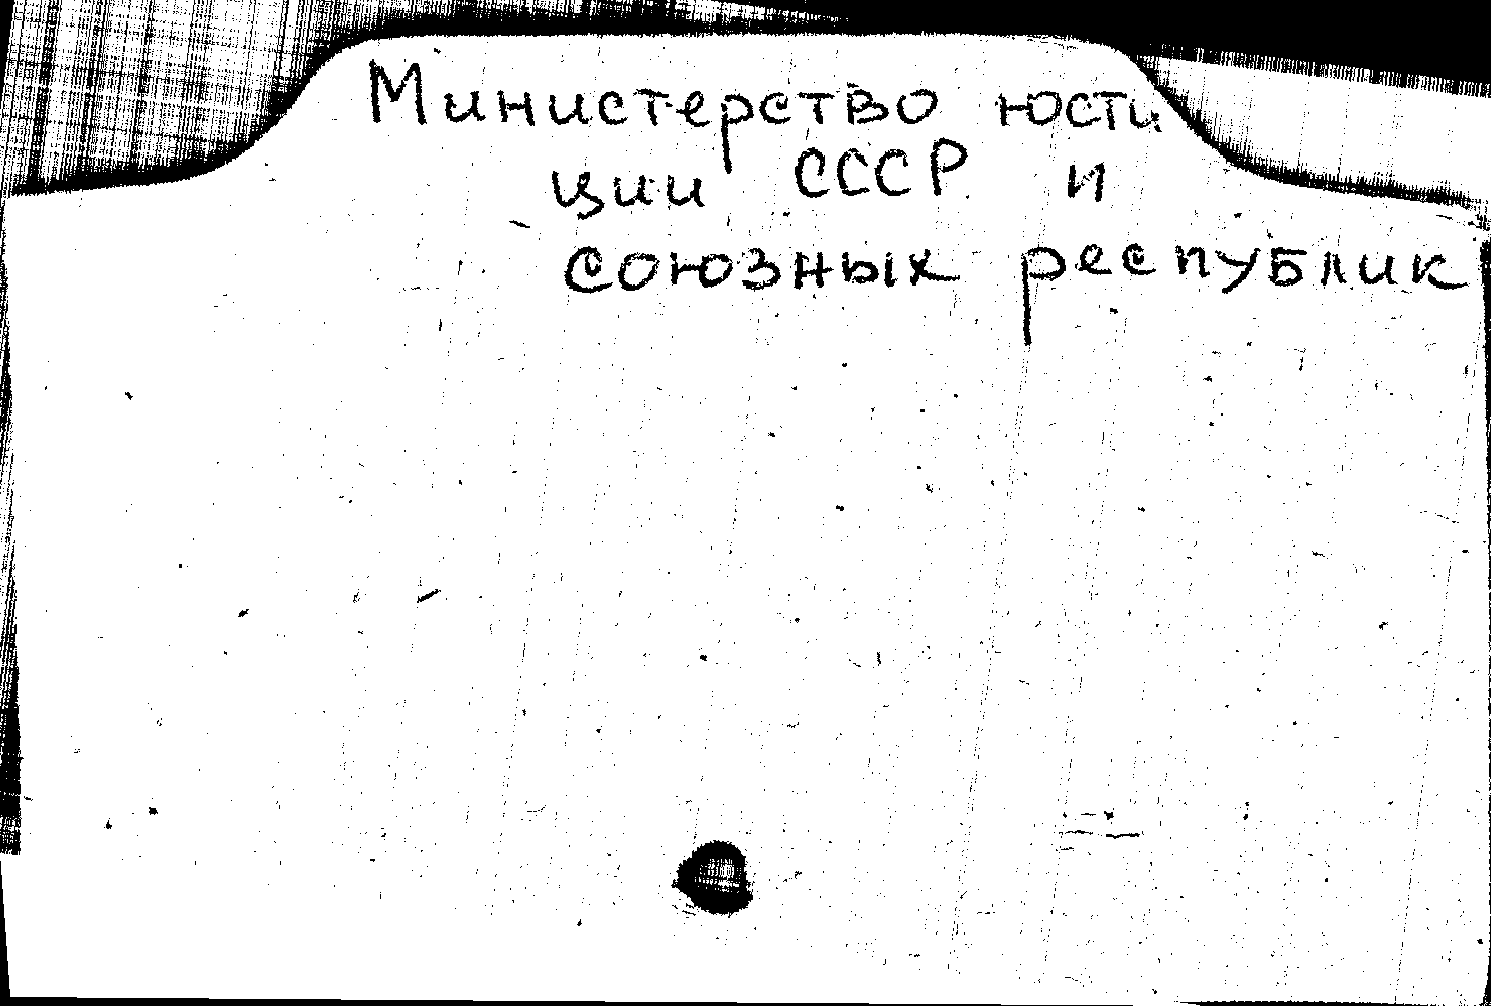 Министерство юсти
ции СССР и
союзных республик